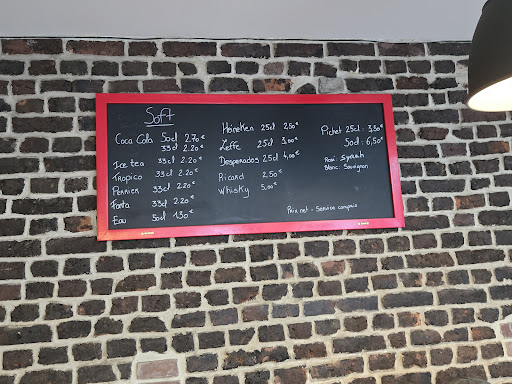 Soft
Coca Cola 50cl 2.70€
33cl 2.20€
Ice tea 33cl 2.20€
Tropico 33cl 2.20€
Perrier 33cl 2.20€
Fanta 33cl 2.20€
Eau 50cl 1.30€
Heineken 25cl 2,50€
Leffe 25cl 3,00€
Desperados 25cl 4,00€
Ricard 2,50€
Whisky 5,00€
Pichet 25cl: 3,30€
50cl: 6,50€
Rosé: Syrah
Blanc: Sauvignon
Prix net - Service compris